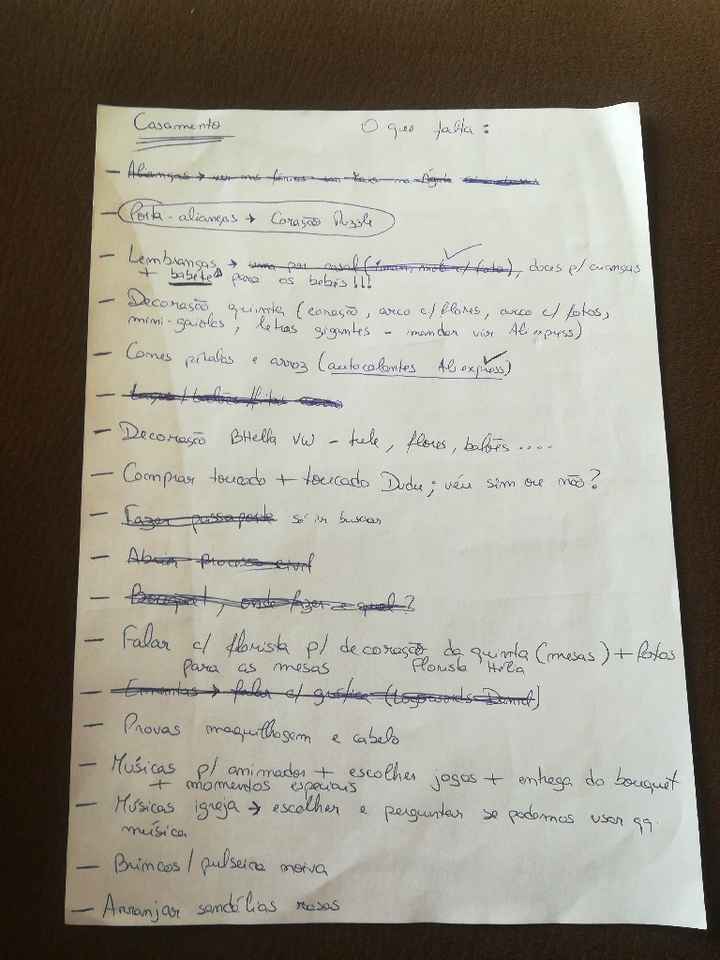 Casamento O que falta:
- Alianças →
- Porta-alianças → Coração Puzzle
- Lembranças → uma por casal (íman, c/ foto), doces p/ crianças
+ babetes para os bebés!!!
- Decoração quinta (coração, arco c/ flores, arco c/ fotos,
mini-gaiolas, letras gigantes - mandar vir Aliexpress)
- Cones pétalas e arroz (autocolantes Aliexpress)
- Laços / balões /
- Decoração BHella VW - tule, flores, balões ....
- Comprar toucado + toucado Dudu; véu sim ou não?
- Fazer passaporte só ir buscar
- Abrir processo civil
- Bouquet, onde fazer e qual?
- Falar c/ florista p/ decoração da quinta (mesas) + fotos
para as mesas Florista Hélia
- Ementas → falar c/ gráfica
- Provas maquilhagem e cabelo
- Músicas p/ animador + escolher jogos + entrega do bouquet
+ momentos especiais
- Músicas igreja → escolher e perguntar se podemos usar qq.
música
- Brincos / pulseira noiva
- Arranjar sandálias rosas